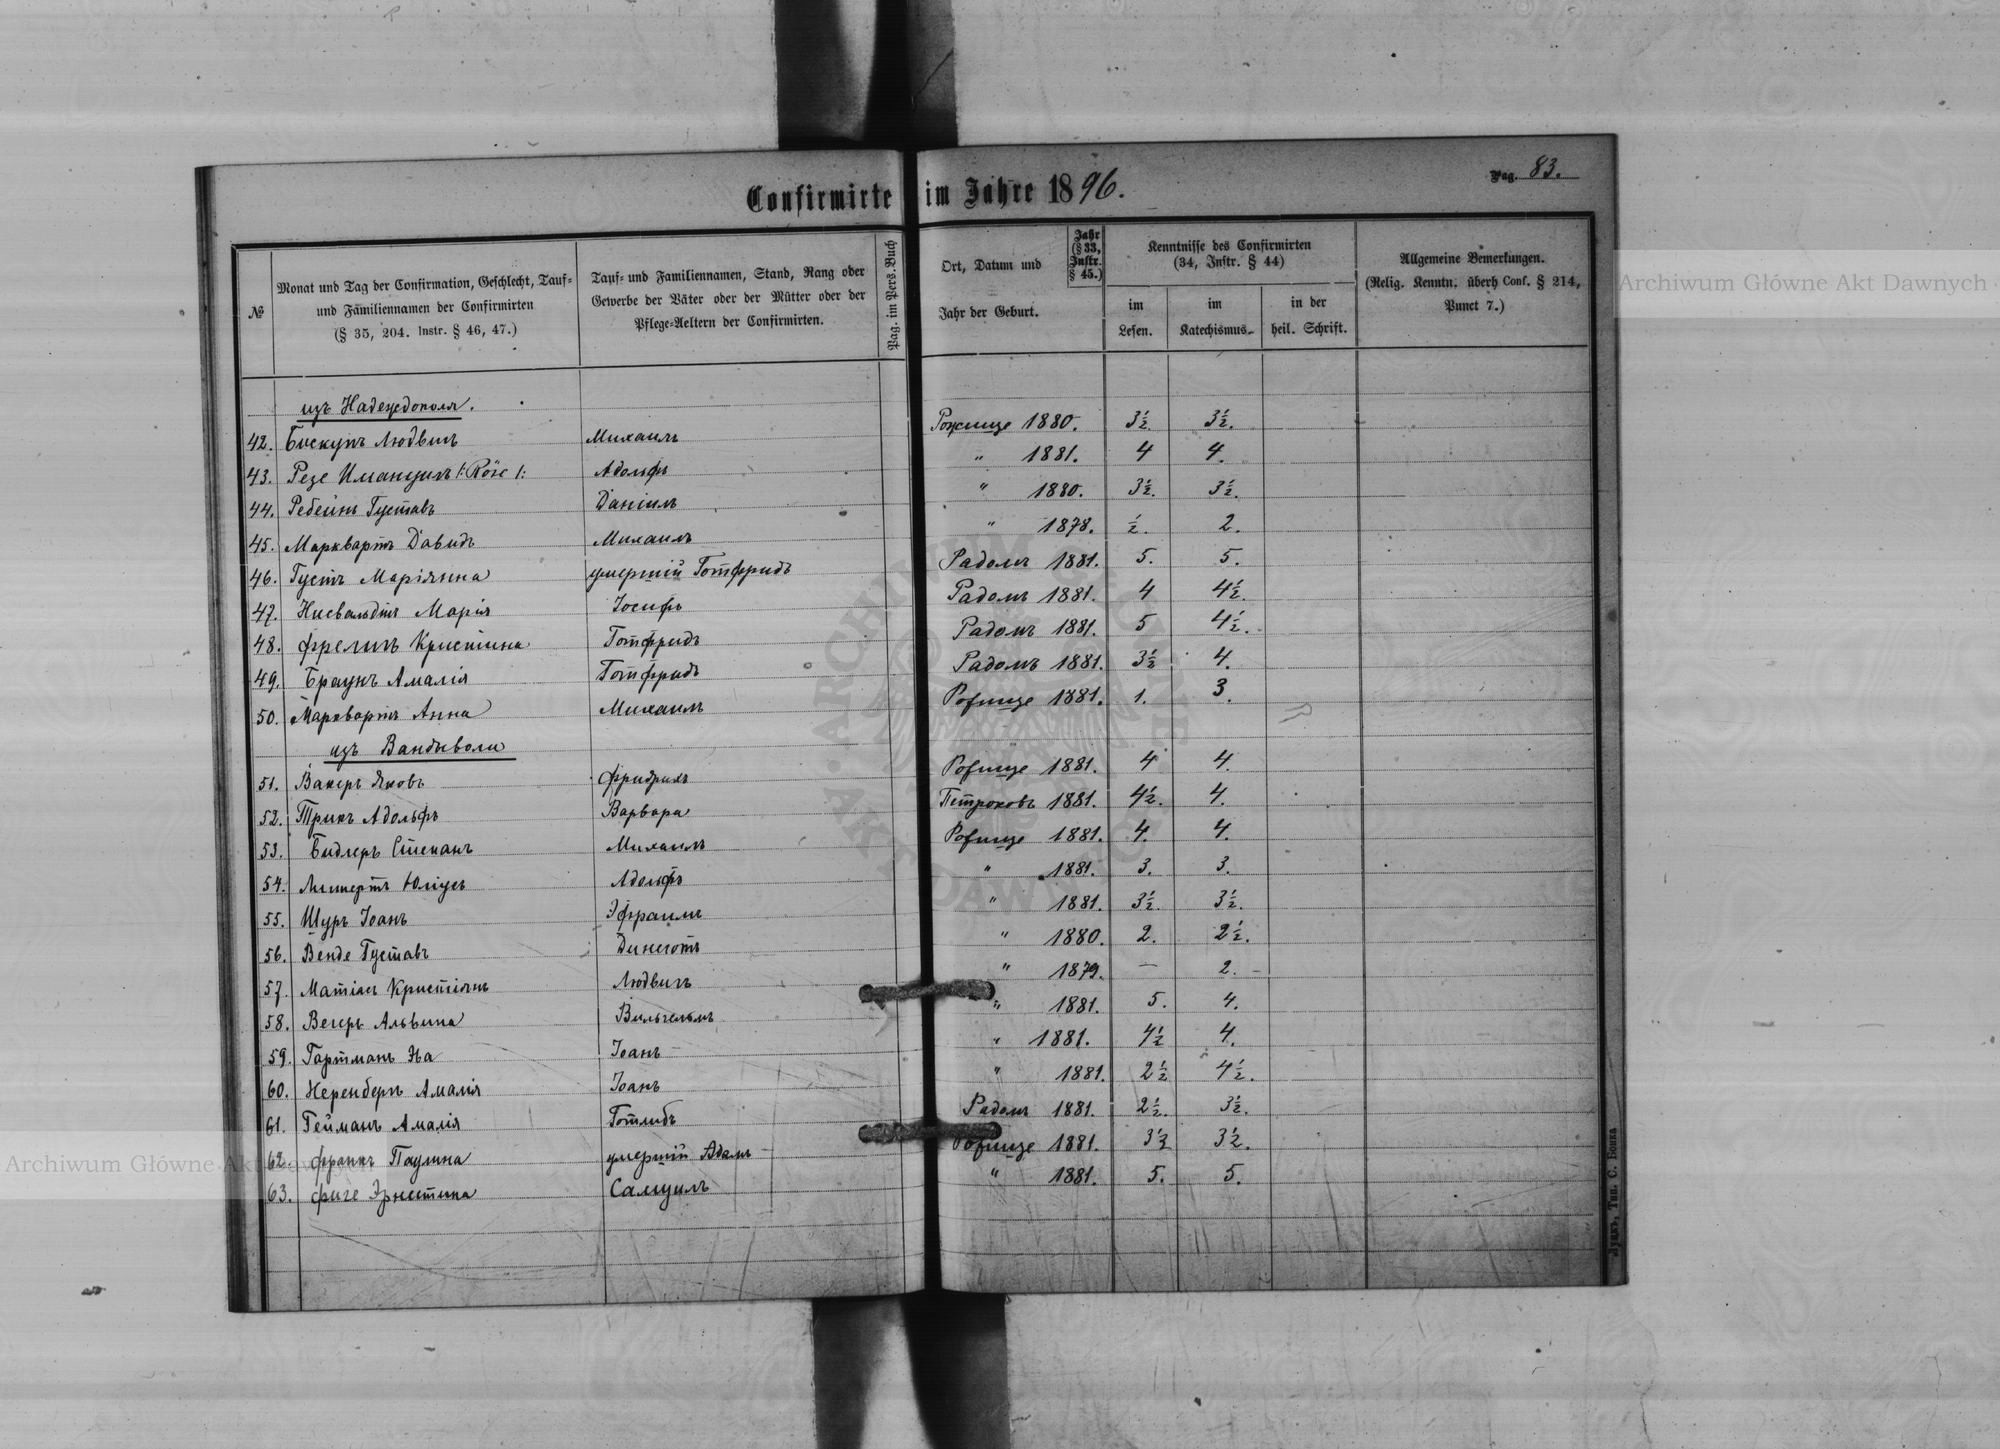 Confirmirte im Jahre 1896.
Pag. 83.
№
Monat und Tag der Confirmation, Geschlecht, Tauf-
und Familiennamen der Confirmirten
(§ 35, 204. Instr. § 46, 47.)
Tauf- und Familiennamen, Stand, Rang oder
Gewerbe der Väter oder der Mütter oder der
Pflege-Aeltern der Confirmirten.
Pag. im Pers. Buch
Ort, Datum und
Jahr der Geburt.
Jahr
(§ 33,
Instr.
§ 45.)
Kenntnisse des Confirmirten
(34, Instr. § 44)
im
Lesen.
im
Katechismus.
in der
heil. Schrift.
Allgemeine Bemerkungen.
(Relig. Kenntn. überh Conf. § 214,
Punct 7.)
изъ Надеждополя.
42. Бискупъ Людвигъ Михаилъ Рожище 1880. 3½ 3½.
43. Резе Имануилъ /: Röse /: Адольфъ " 1881. 4 4.
44. Ребейнъ Густавъ Даніилъ " 1880. 3½. 3½.
45. Марквартъ Давидъ Михаилъ " 1878. ½. 2.
46. Густъ Маріянна умершій Готфридъ Радомъ 1881. 5. 5.
47. Нисвальдтъ Марія Іосифъ Радомъ 1881. 4 4½.
48. Фрелихъ Кристина Готфридъ Радомъ 1881. 5 4½.
49. Браунъ Амалія Готфридъ Радомъ 1881. 3½ 4.
50. Марквартъ Анна Михаилъ Рожище 1881. 1. 3.
изъ Вандыволи
51. Вакеръ Яковъ Фридрихъ Рожище 1881. 4 4.
52. Трикъ Адольфъ Варвара Петроковъ 1881. 4½. 4.
53. Бидлеръ Степанъ Михаилъ Рожище 1881. 4. 4.
54. Липертъ Юліусъ Адольфъ " 1881. 3. 3.
55. Шуръ Іоанъ Эфраимъ " 1881. 3½. 3½.
56. Венде Густавъ " 1880. 2. 2½.
57. Матіасъ Кристіянъ Людвигъ " 1879. — 2. –
58. Вегеръ Альвина Вильгельмъ " 1881. 5. 4.
59. Гартманъ Іоанъ " 1881. 4½ 4.
60. Неренбергъ Амалія Іоанъ " 1881. 2½ 4½.
61. Гейманъ Амалія Готлибъ Радомъ 1881. 2½. 3½.
62. Франкъ Паулина умершій Адамъ Рожище 1881. 3½ 3½.
63. Фиге Эрнстина Самуилъ " 1881. 5. 5.
Луцкъ, Тип. С. Бонка
Archiwum Główne Akt Dawnych
Archiwum Główne Akt Dawnych